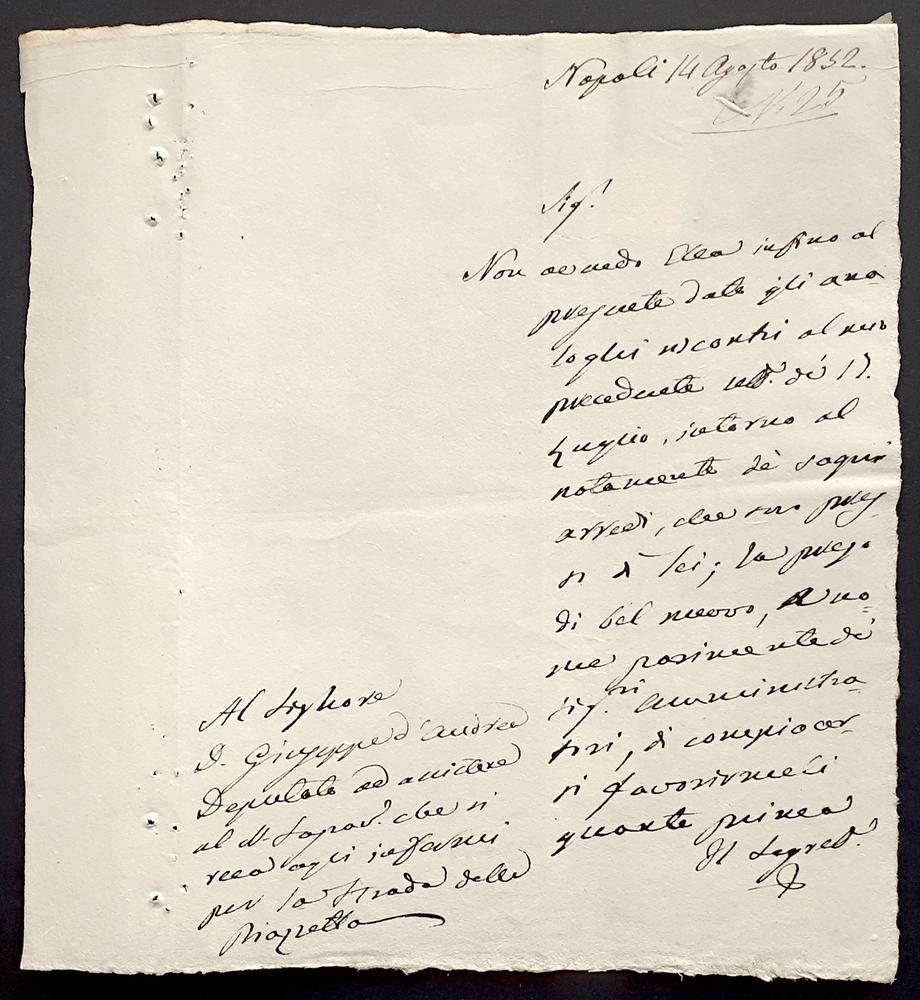 Napoli 14 Agosto 1852.
N. 25
Sig.r
Non avendo Ella infino al
presente dato gli ana-
loghi riscontri al mio
precedente de' 17.
Luglio, intorno al
notamento de' sagri
arredi, che sono pres-
si di lei; la prego
di bel nuovo, a no-
me parimente de'
Sig.ri Amministra-
tori, di compiacer-
si favorirmeli
quanto prima
Il Segret.o
Al Signore
D. Giuseppe d'Andrea
Deputato ad assistere
al SS. che si
reca agli infermi
per la Strada della
Piazzetta